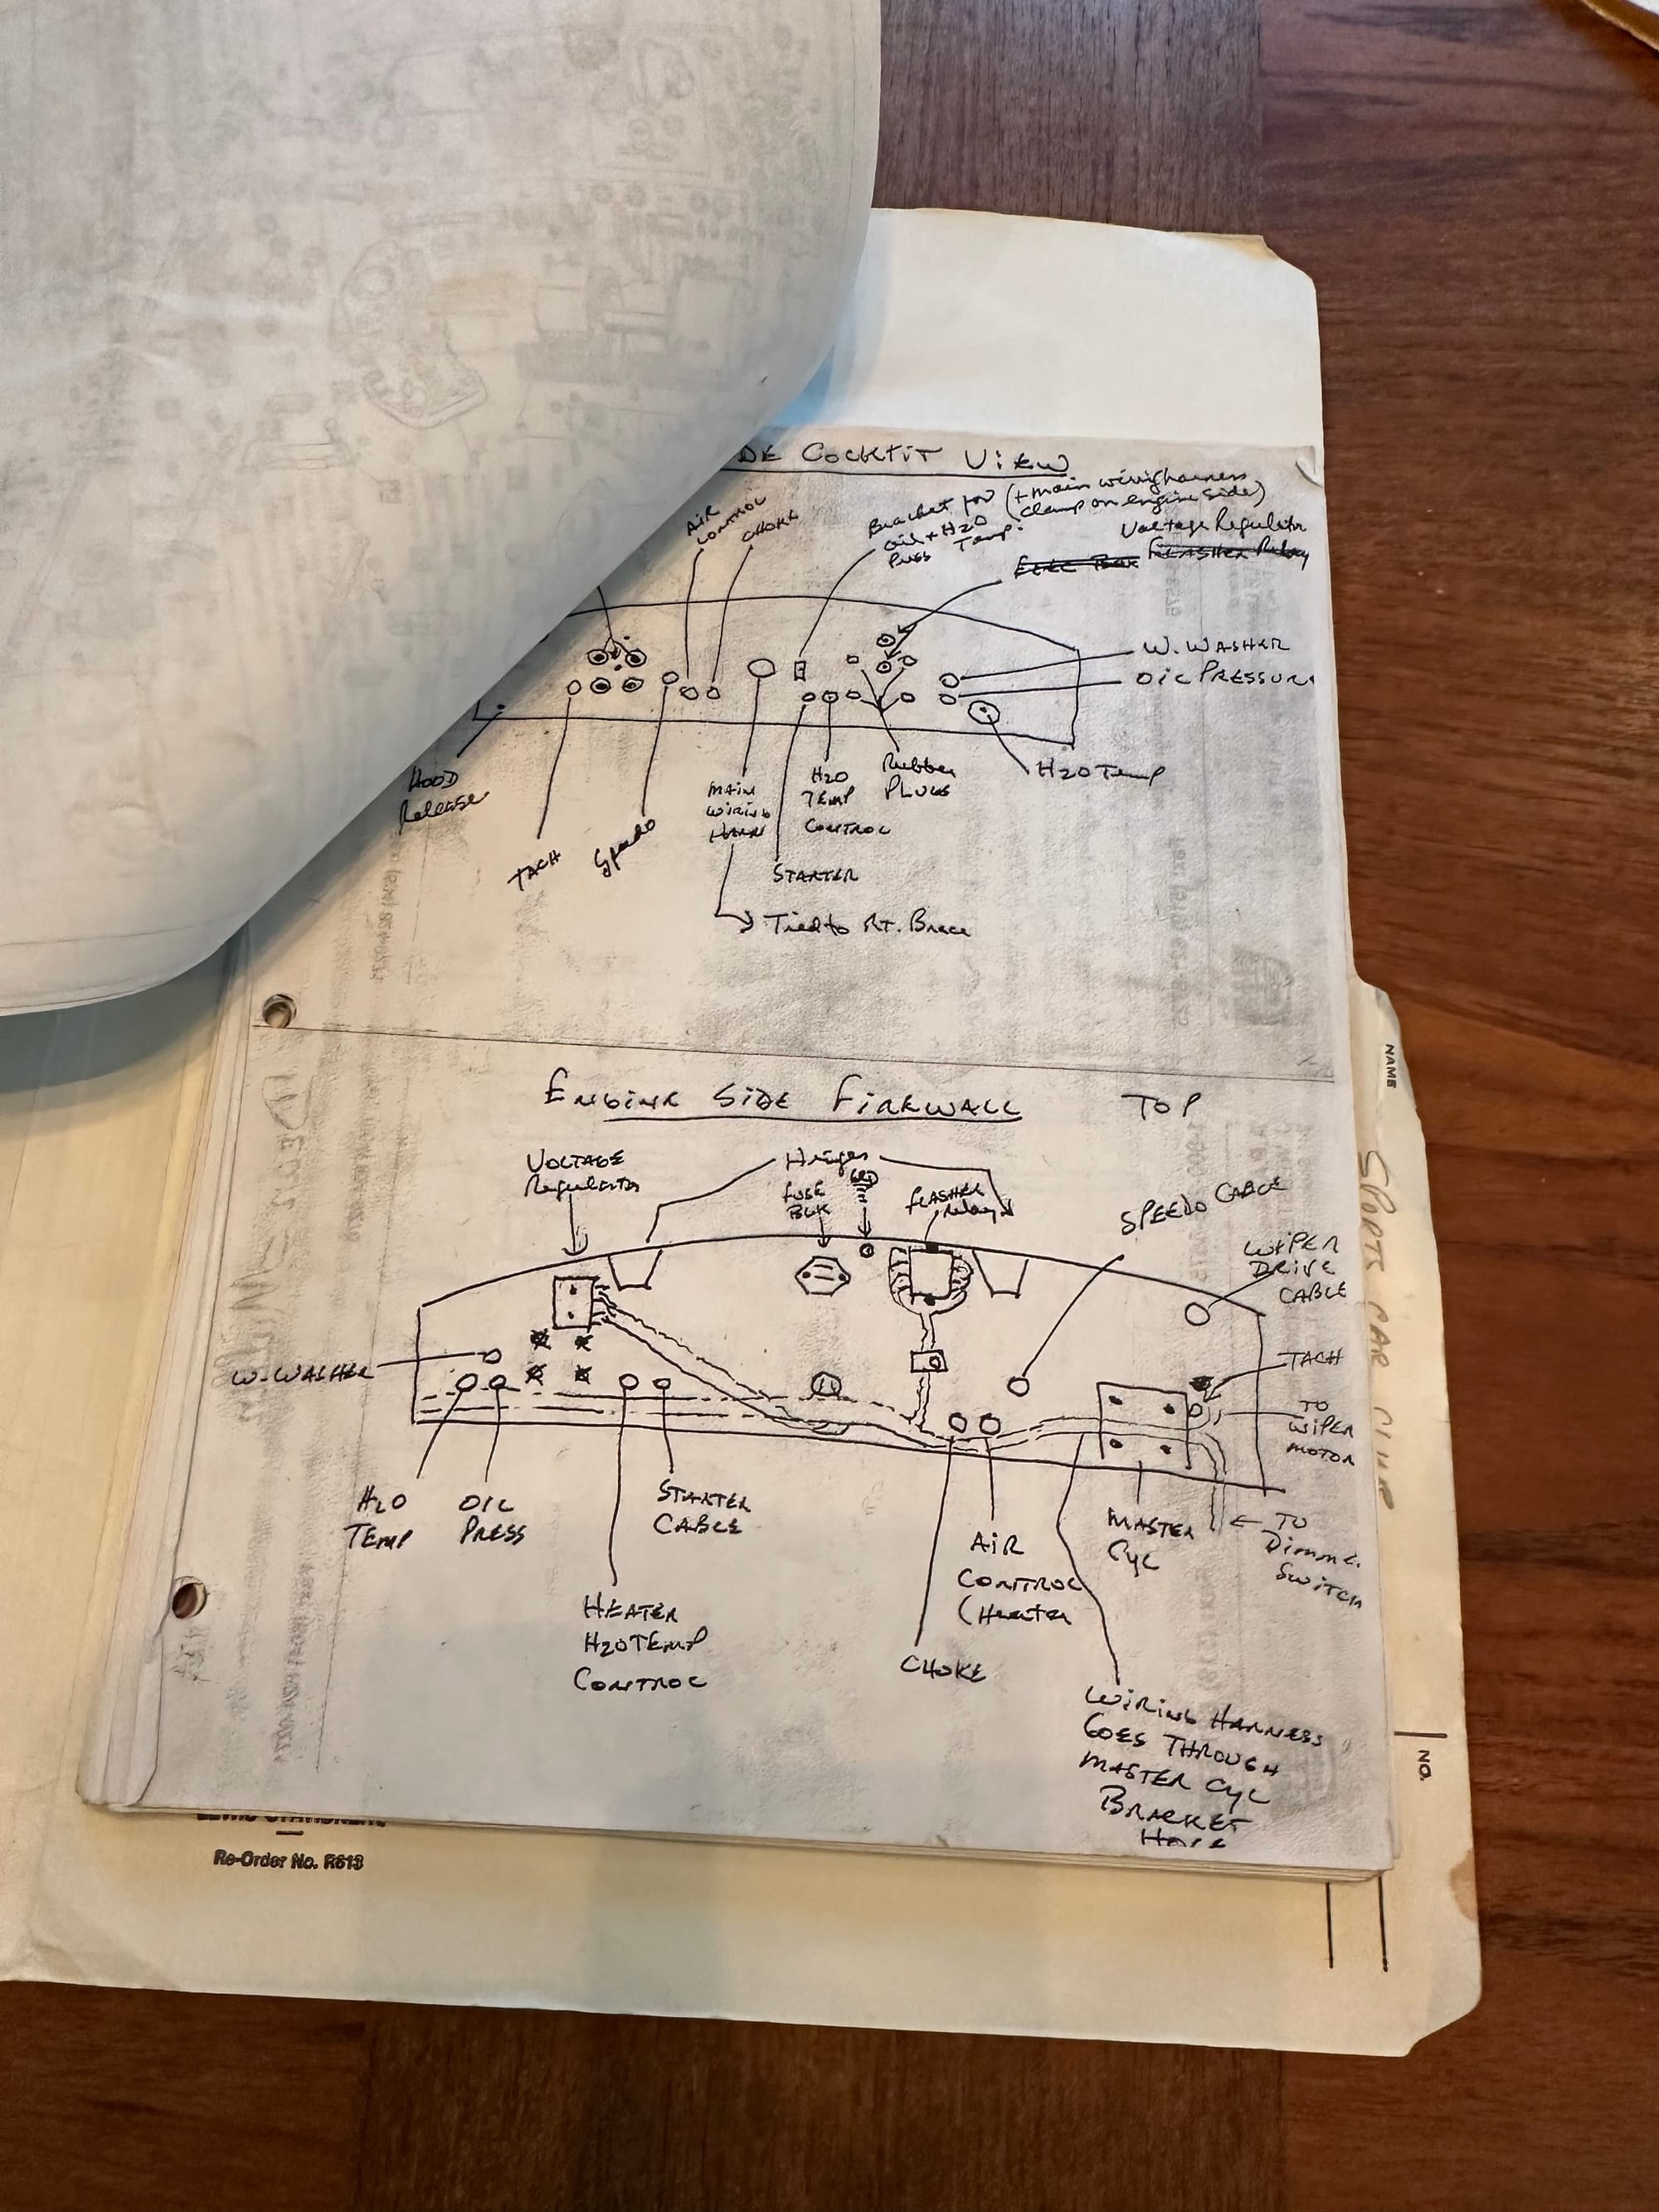 DE COCKPIT VIEW
AIR
CONTROL
CHOKE
Bracket for (+main wiring harness
Oil + H2O clamp on engine side)
Press Temp.
Voltage Regulator
FLASHER Relay
W. WASHER
OIL PRESSURE
HOOD
Release
TACH
Speedo
MAIN
WIRING
HARN
H2O
TEMP
CONTROL
Rubber
PLUGS
H2O Temp
STARTER
Tied to RT. Brace
ENGINE SIDE FIREWALL TOP
VOLTAGE
Regulator
Hinges
FUSE
BLK
FLASHER
Relay
SPEEDO CABLE
WIPER
DRIVE
CABLE
W. WASHER
TACH
TO
WIPER
MOTOR
H2O
TEMP
OIL
PRESS
STARTER
CABLE
HEATER
H2O TEMP
CONTROL
AIR
CONTROL
(Heater
CHOKE
MASTER
CYL
TO
Dimmer
SWITCH
WIRING HARNESS
GOES THROUGH
MASTER CYL
BRACKET
Hole
NAME
SPORTS CAR CLUB
NO.
Re-Order No. R613